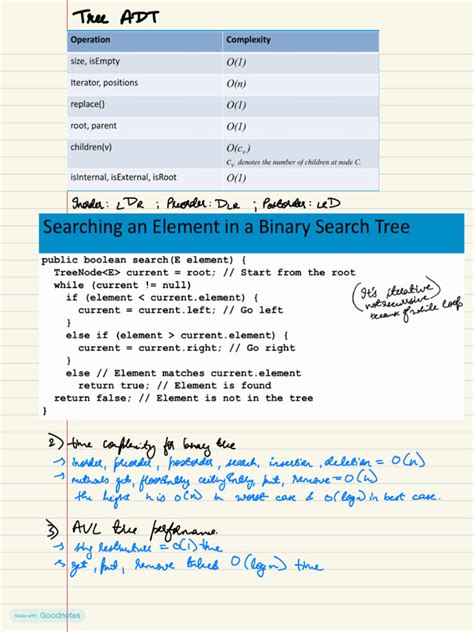 Tree ADT
Operation Complexity
size, isEmpty O(1)
Iterator, positions O(n)
replace() O(1)
root, parent O(1)
children(v) O(cᵥ)
Cᵥ denotes the number of children at node C.
isInternal, isExternal, isRoot O(1)
Inorder: LDR ; Preorder: DLR ; Postorder: LRD
Searching an Element in a Binary Search Tree
public boolean search(E element) {
TreeNode<E> current = root; // Start from the root
while (current != null)
if (element < current.element) {
current = current.left; // Go left
}
else if (element > current.element) {
current = current.right; // Go right
}
else // Element matches current.element
return true; // Element is found
return false; // Element is not in the tree
}
(It's iterative
not recursive
because of while loop)
2) time complexity for binary tree
→ inorder, preorder, postorder, search, insertion, deletion = O(n)
→ methods get, floorEntry, ceilingEntry, put, remove = O(h)
the height h is O(n) in worst case & O(log n) in best case.
3) AVL tree performance
→ restructure = O(1) time
→ get, put, remove takes O(log n) time
Made with Goodnotes